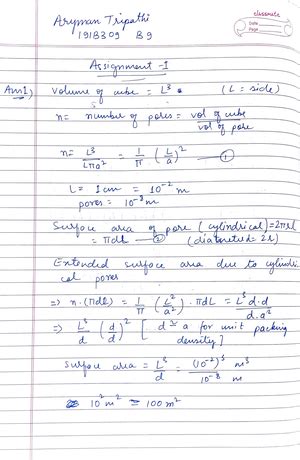 classmate
Date
Page
Aryman Tripathi
191B309 B9
Assignment-1
Ans1) Volume of cube = L³. (L = side)
n = number of pores = vol of cube / vol of pore
n = L³ / Lπa² = 1/π (L/a)² — ①
L = 1cm = 10⁻² m
pores = 10⁻⁸ m
Surface area of pore (cylindrical) = 2πrL
= πdL — ② (diameter d = 2r)
Extended surface area due to cylindri
cal pores
⇒ n·(πdL) = 1/π (L²/a²) · πdL = L³ d·d / d·a²
⇒ L³/d (d/a)² [ d ≅ a for unit packing
density]
Surface area = L³/d = (10⁻²)³ / 10⁻⁸ m³ / m
10² m² = 100 m²